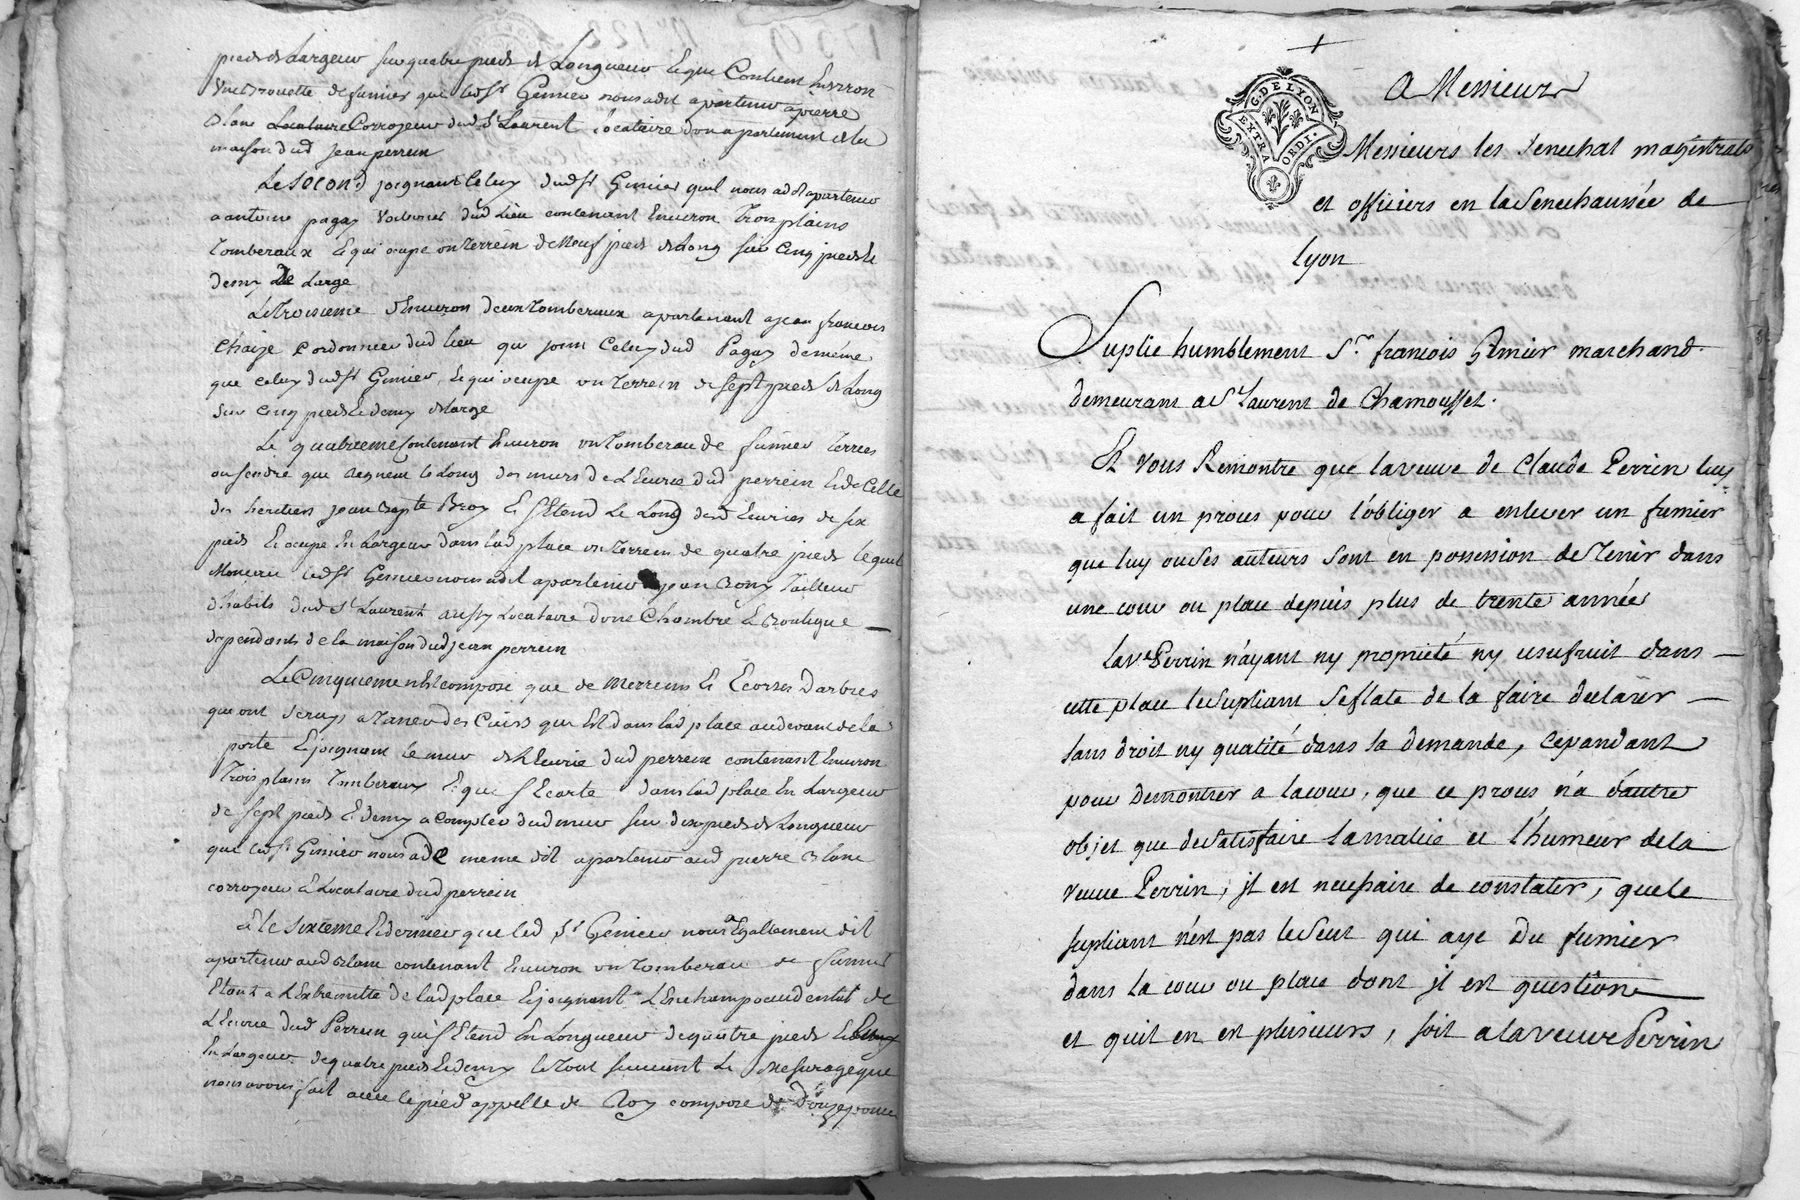 pieds de Largeur sur quatre pieds de Longueur Et que Contient Environ
une Brouette de fumier que led Sr Gimier nous a dit apartenir a pierre
Blanc Locataire Corroyeur dud St Laurent locataire d'un apartement de la
maison dud jean perrein
Le second joignant Celuy dud Sr Gimier quil nous a dit apartenir
a antoine pagay Voiturier dud Lieu contenant Environ Trois plains
Tomberaux Et qui ocupe un Terrein de Neuf pieds de Long sur Cinq pieds Et
demy de Large
Le Troisieme d'Environ deux Tomberaux apartenant a jean francois
Chaize Cordonnier dud lieu qui joint Celuy dud Pagay de même
que celuy dud Sr Gimier, Et qui ocupe un Terrein de sept pieds de Long
sur cinq pieds Et demy de large
Le quatrieme Contenant Environ un Tomberau de fumier Terres
ou Cendre que Regnent le Long des murs de L'Ecurie dud perrein Et de Celle
des heritiers jean Bapte Broy Et s'Etend Le Long desd Ecuries de six
pieds Et ocupe En Largeur dans lad place un Terrein de quatre pieds lequel
Monceau led Sr Gimier nous a dit apartenir a jean Bony Tailleur
d'habits dud St Laurent aussy Locataire d'une Chambre Et Boutique
dependants de la maison dud jean perrein
Le Cinquieme n'Est composé que de Merreins Et Ecorses D'arbres
qui ont servy a Taner des Cuirs qui Est dans lad place audevant de la
porte Et joignant le mur de L'Ecurie dud perrein contenant Environ
Trois plains Tomberaux Et qui s'Ecarte dans lad place En Largeur
de sept pieds Et demy a Compter dud mur sur dix pieds de Longueur
que led Sr Gimier nous a de meme dit apartenir aud pierre Blanc
corroyeur Et Locataire dud perrein
Et le sixieme Et dernier que led Sr Gimier nous a Egallement dit
apartenir aud Blanc contenant Environ un Tomberau de fumier
Etant a L'Extremitte de lad place Et joignant L'Enchamp occidental de
L'Ecurie dud Perrein qui s'Etend En Longueur de quatre pieds Et demy
En Largeur de quatre pieds Et demy le Tout suivant Le Mesurage que
nous avons fait avec le pied appellé de Roy composé de Douze pouces
A Messieurs
G. DE LYON
EXTRAORDI.
Messieurs les Senechal magistrats
et officiers en la Senechaussée de
lyon
Suplie humblement Sr. francois Gimier marchand
demeurant a St Laurent de Chamousset.
Et vous Remontre que la veuve de Claude Perrin luy
a fait un proces pour l'obliger a enlever un fumier
que luy ou ses auteurs sont en possession de tenir dans
une cour ou place depuis plus de trente année
la ve Perrin n'ayant ny proprieté ny usufruit dans
cette place le supliant se flate de la faire declarer
sans droit ny qualité dans sa demande, cependant
pour demontrer a la cour, que ce proces n'a d'autre
objet que de satisfaire la malice et l'humeur de la
veuve Perrin, il est necessaire de constater, que le
supliant n'est pas le seul qui aye du fumier
dans la cour ou place dont il est question
et quil en est plusieurs, soit a la veuve Perrin